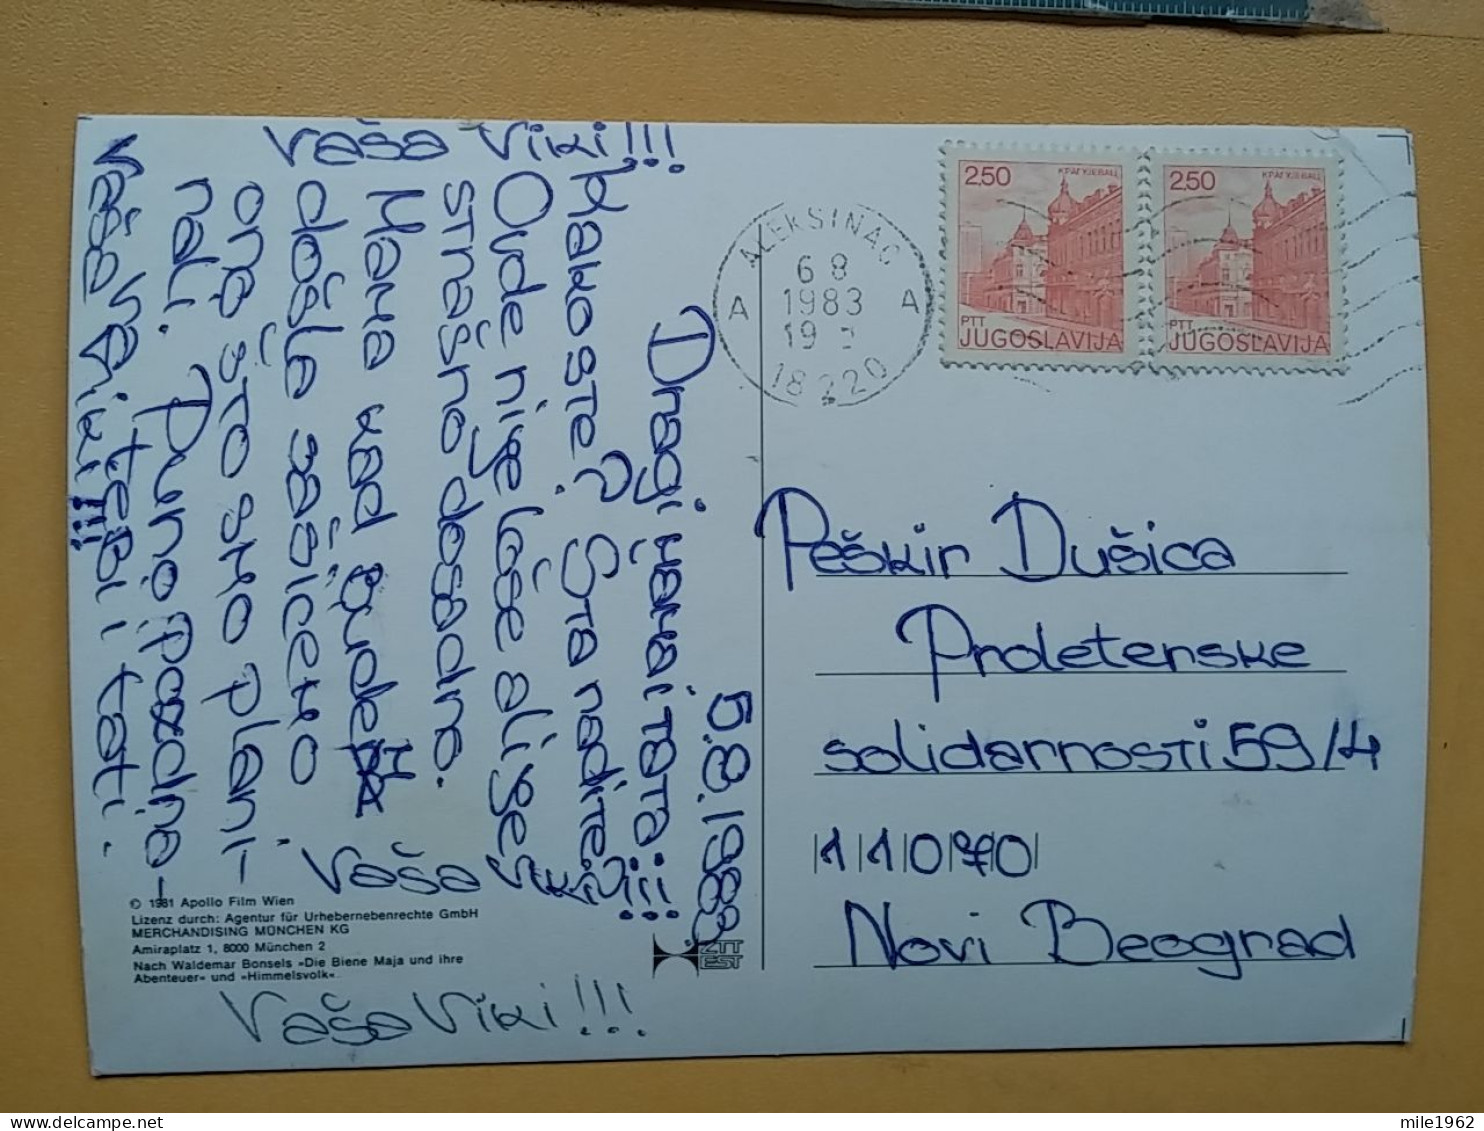 Vaša Viki!!!
5.8.1983
Dragi mama i tata!!!
Kako ste? Šta radite?
Ovde nije loše ali je
strašno dosadno.
Mama kad budem
došla zašićemo
ono što smo plani-
rali. Puno pozdra-
va tebi i tati.
Vaša Viki!!!
Vaša Viki!!!
Vaša Viki!!!
© 1981 Apollo Film Wien
Lizenz durch: Agentur für Urhebernebenrechte GmbH
MERCHANDISING MÜNCHEN KG
Amiraplatz 1, 8000 München 2
Nach Waldemar Bonsels »Die Biene Maja und ihre
Abenteuer« und »Himmelsvolk«
ZTT
EST
ALEKSINAC
6 8
1983
19
A A
18220
2.50
PTT
JUGOSLAVIJA
2.50
PTT
JUGOSLAVIJA
Peškir Dušica
Proleterske
solidarnosti 59/4
11070
Novi Beograd
mile1962